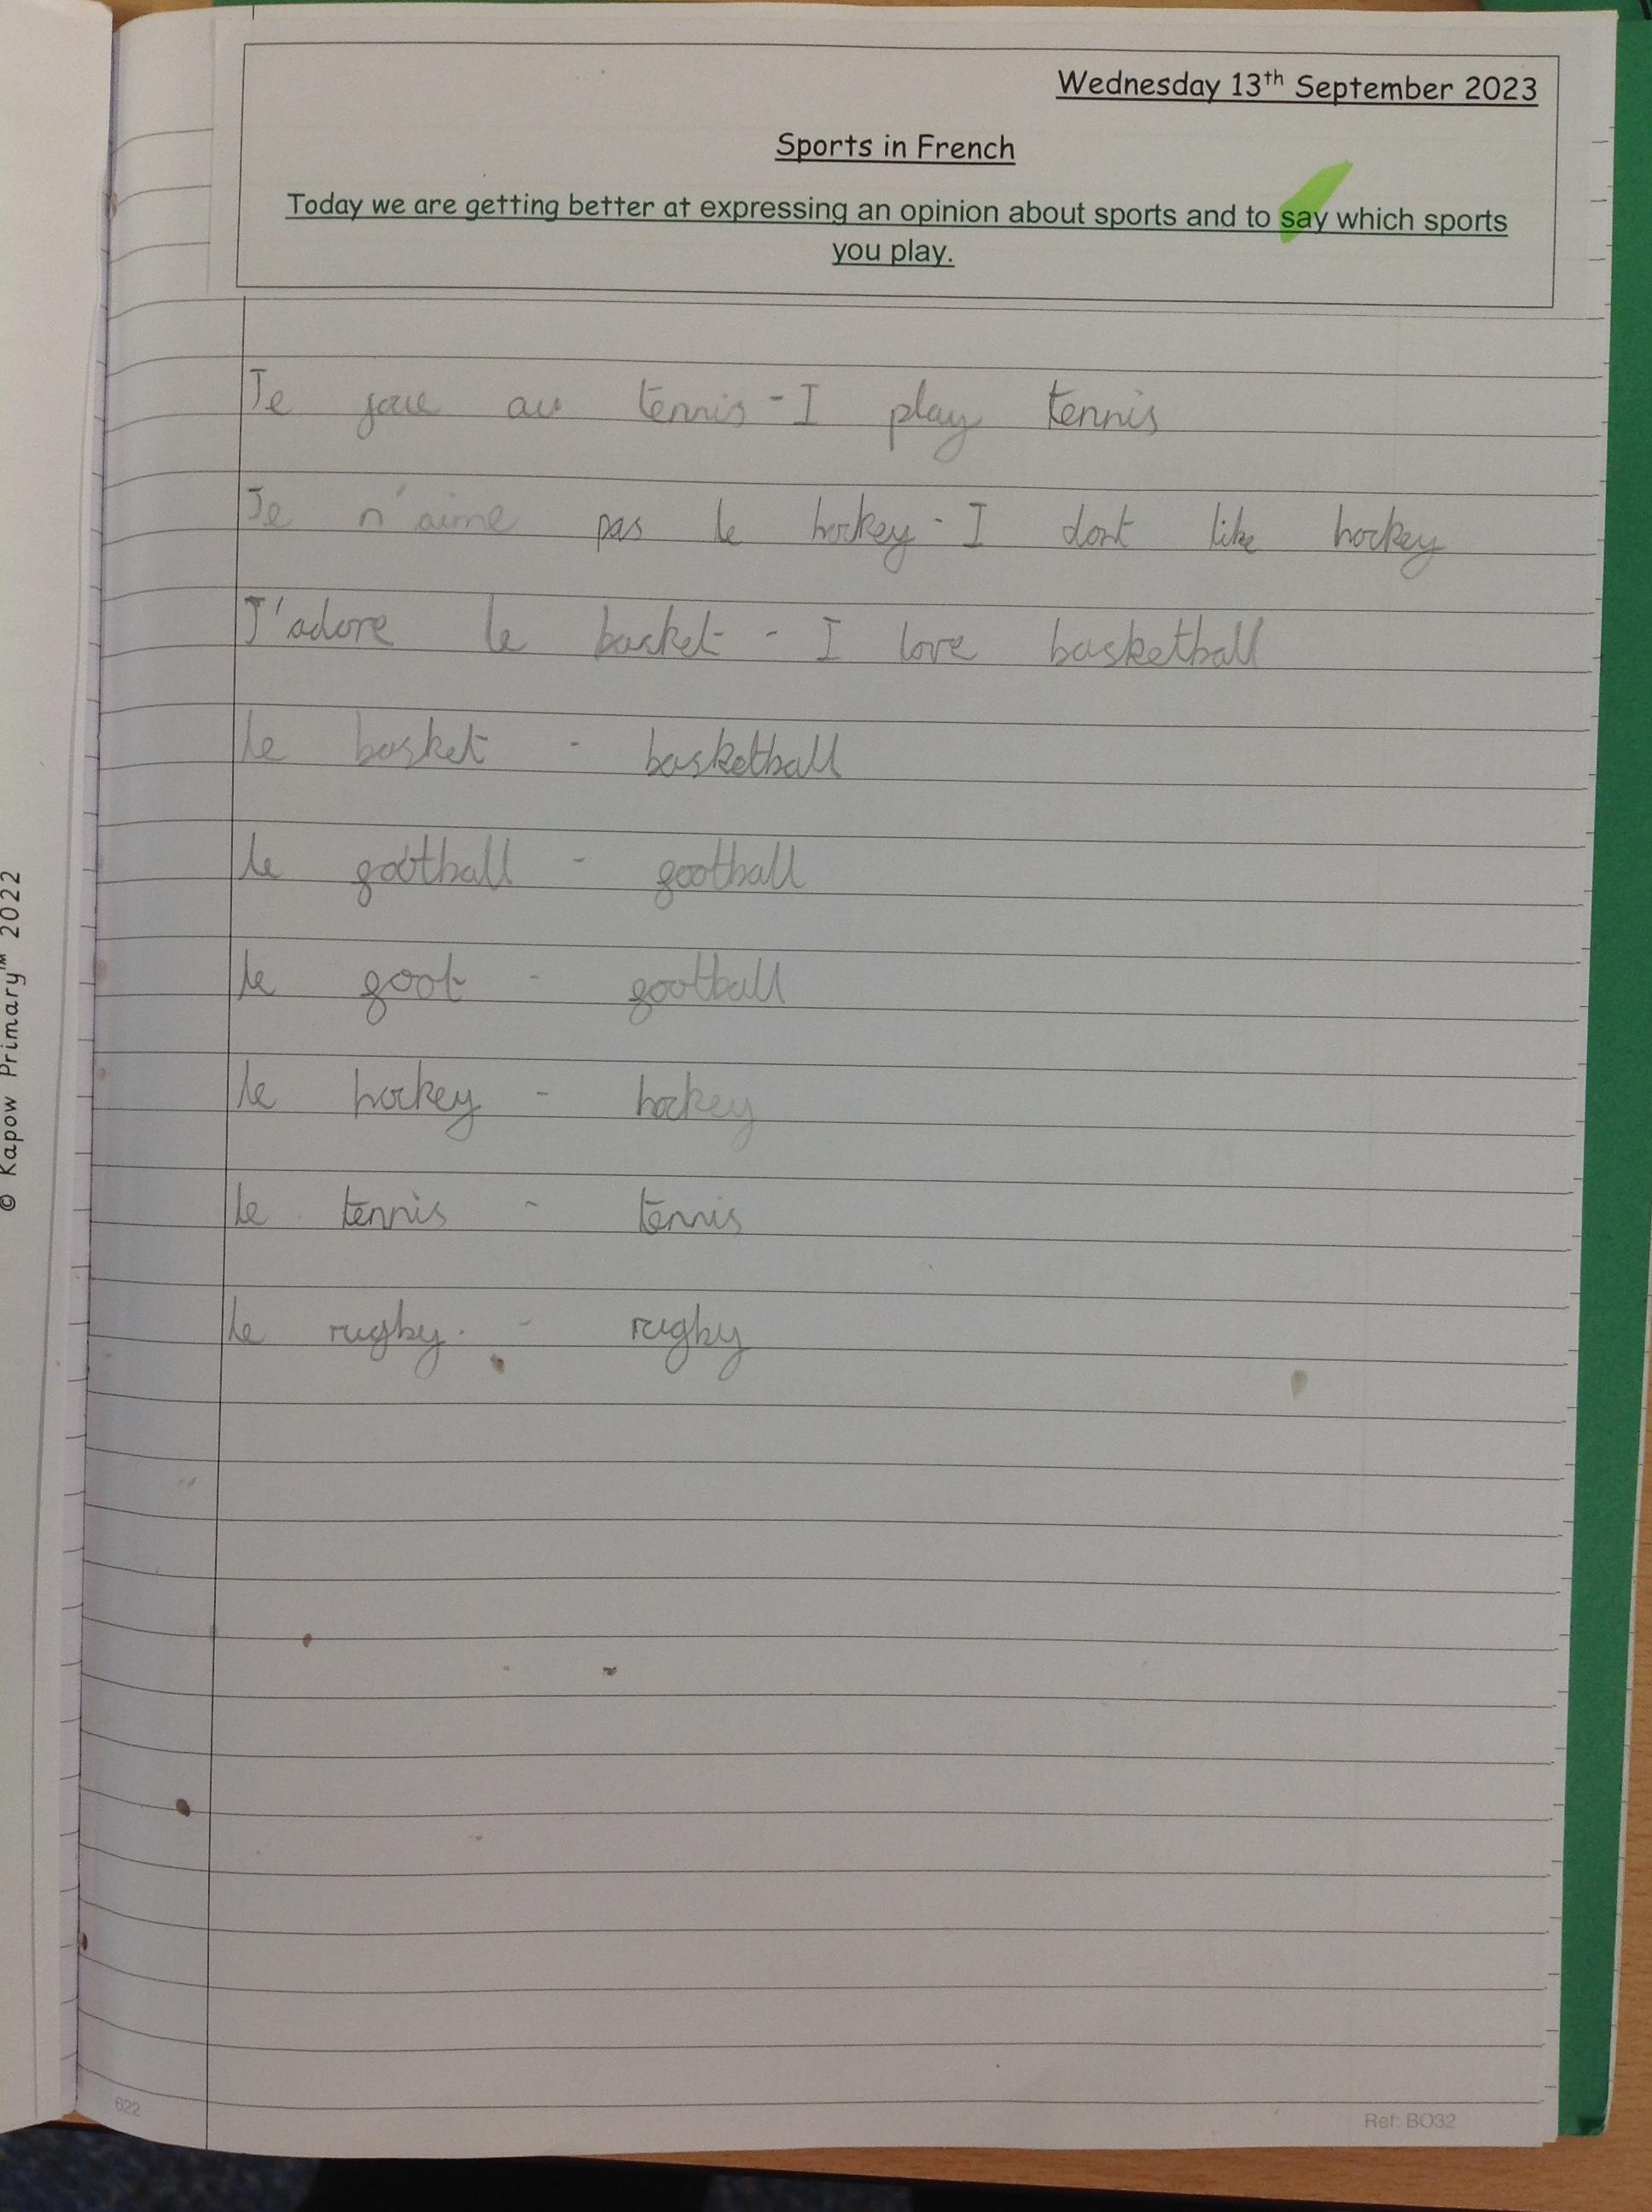 Wednesday 13th September 2023
Sports in French
Today we are getting better at expressing an opinion about sports and to say which sports
you play.
Je joue au tennis - I play tennis
Je n'aime pas le hockey - I dont like hockey
J'adore le basket - I love basketball
le basket - basketball
le football - football
le foot - football
le hockey - hockey
le tennis - tennis
le rugby. - rugby
© Kapow Primary™ 2022
622
Ref: BO32